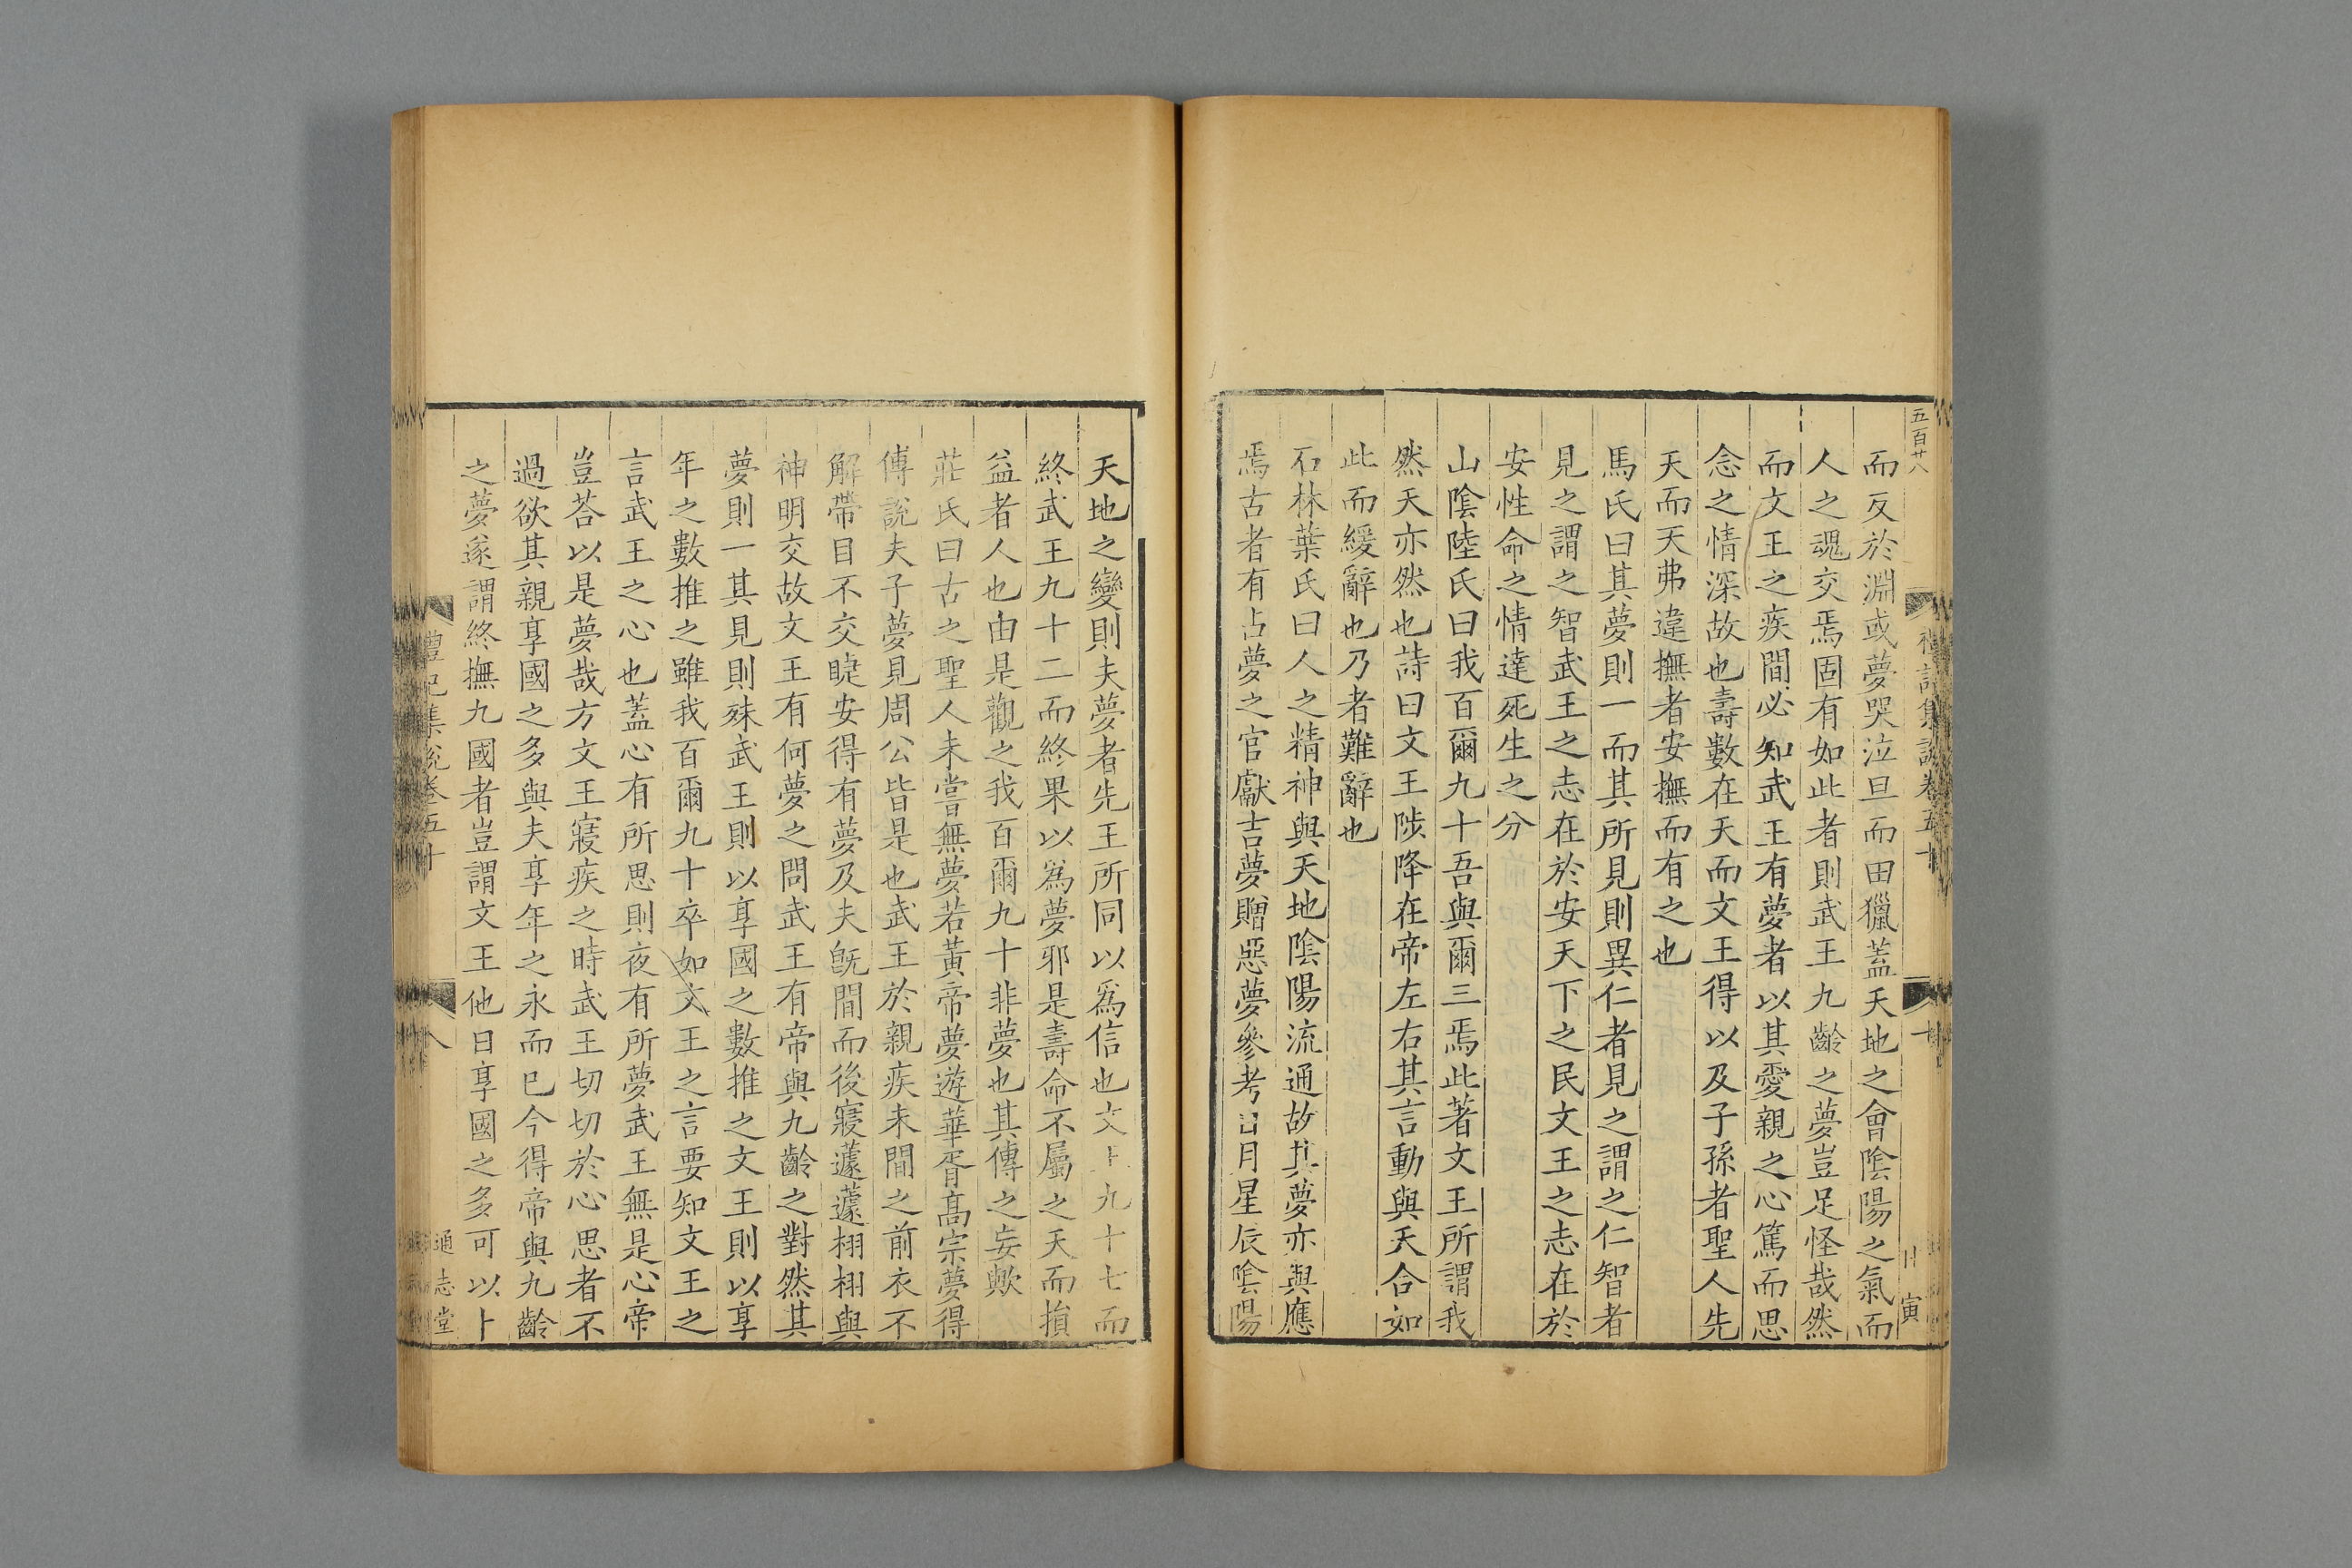 五百廿八
而反於淵或夢哭泣旦而田獵蓋天地之會隂陽之氣而
人之魂交焉固有如此者則武王九齡之夢豈足怪哉然
而文王之疾間必知武王有夢者以其愛親之心篤而思
念之情深故也壽數在天而文王得以及子孫者聖人先
天而天弗違撫者安撫而有之也
馬氏曰其夢則一而其所見則異仁者見之謂之仁智者
見之謂之智武王之志在於安天下之民文王之志在於
安性命之情達死生之分
山隂陸氏曰我百爾九十吾與爾三焉此著文王所謂我
然天亦然也詩曰文王陟降在帝左右其言動與天合如
此而緩辭也乃者難辭也
石林葉氏曰人之精神與天地隂陽流通故其夢亦與應
焉古者有占夢之官獻吉夢贈惡夢參考日月星辰隂陽
天地之變則夫夢者先王所同以爲信也文王九十七而
終武王九十二而終果以爲夢邪是壽命不屬之天而損
益者人也由是觀之我百爾九十非夢也其傳之妄歟
莊氏曰古之聖人未嘗無夢若黃帝夢遊華胥高宗夢得
傅說夫子夢見周公皆是也武王於親疾未間之前衣不
解帶目不交睫安得有夢及夫旣間而後寢蘧蘧栩栩與
神明交故文王有何夢之問武王有帝與九齡之對然其
夢則一其見則殊武王則以享國之數推之文王則以享
年之數推之雖我百爾九十卒如文王之言要知文王之
言武王之心也蓋心有所思則夜有所夢武王無是心帝
豈荅以是夢哉方文王寢疾之時武王切切於心思者不
過欲其親享國之多與夫享年之永而已今得帝與九齡
之夢遂謂終撫九國者豈謂文王他日享國之多可以卜
禮記集說卷五十
八
通志堂